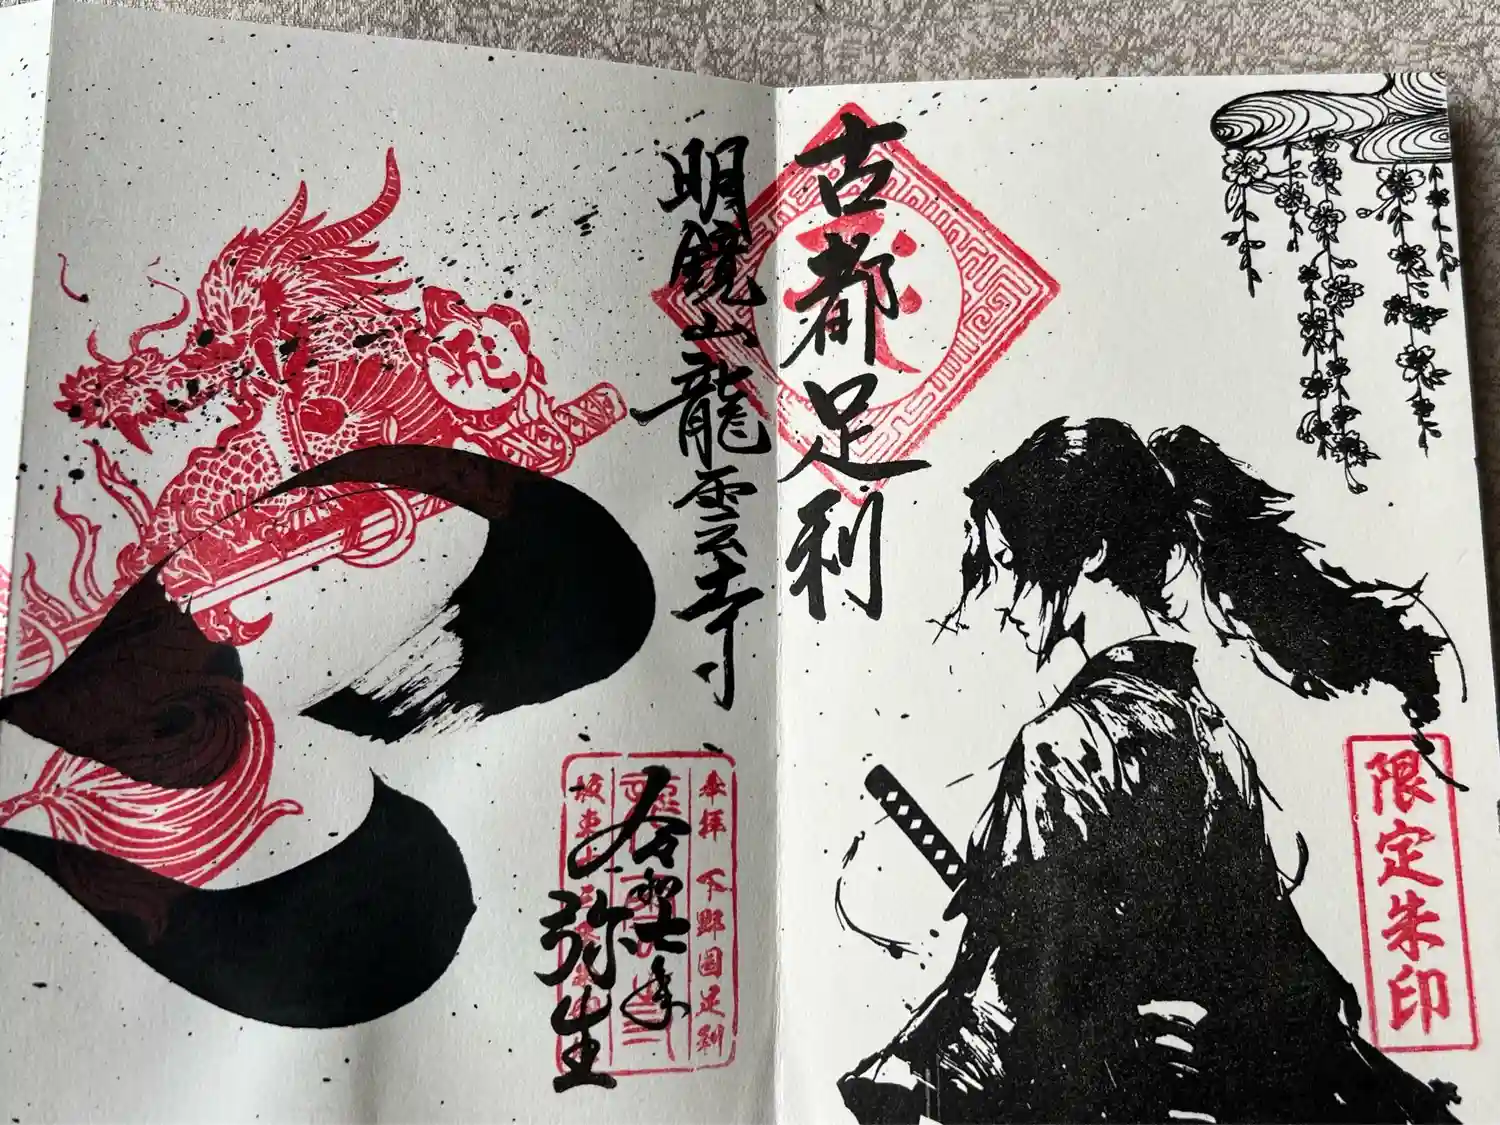 古都足利
限定朱印
明鏡山龍雲寺
奉拝 下野國足利
令和七年
弥生